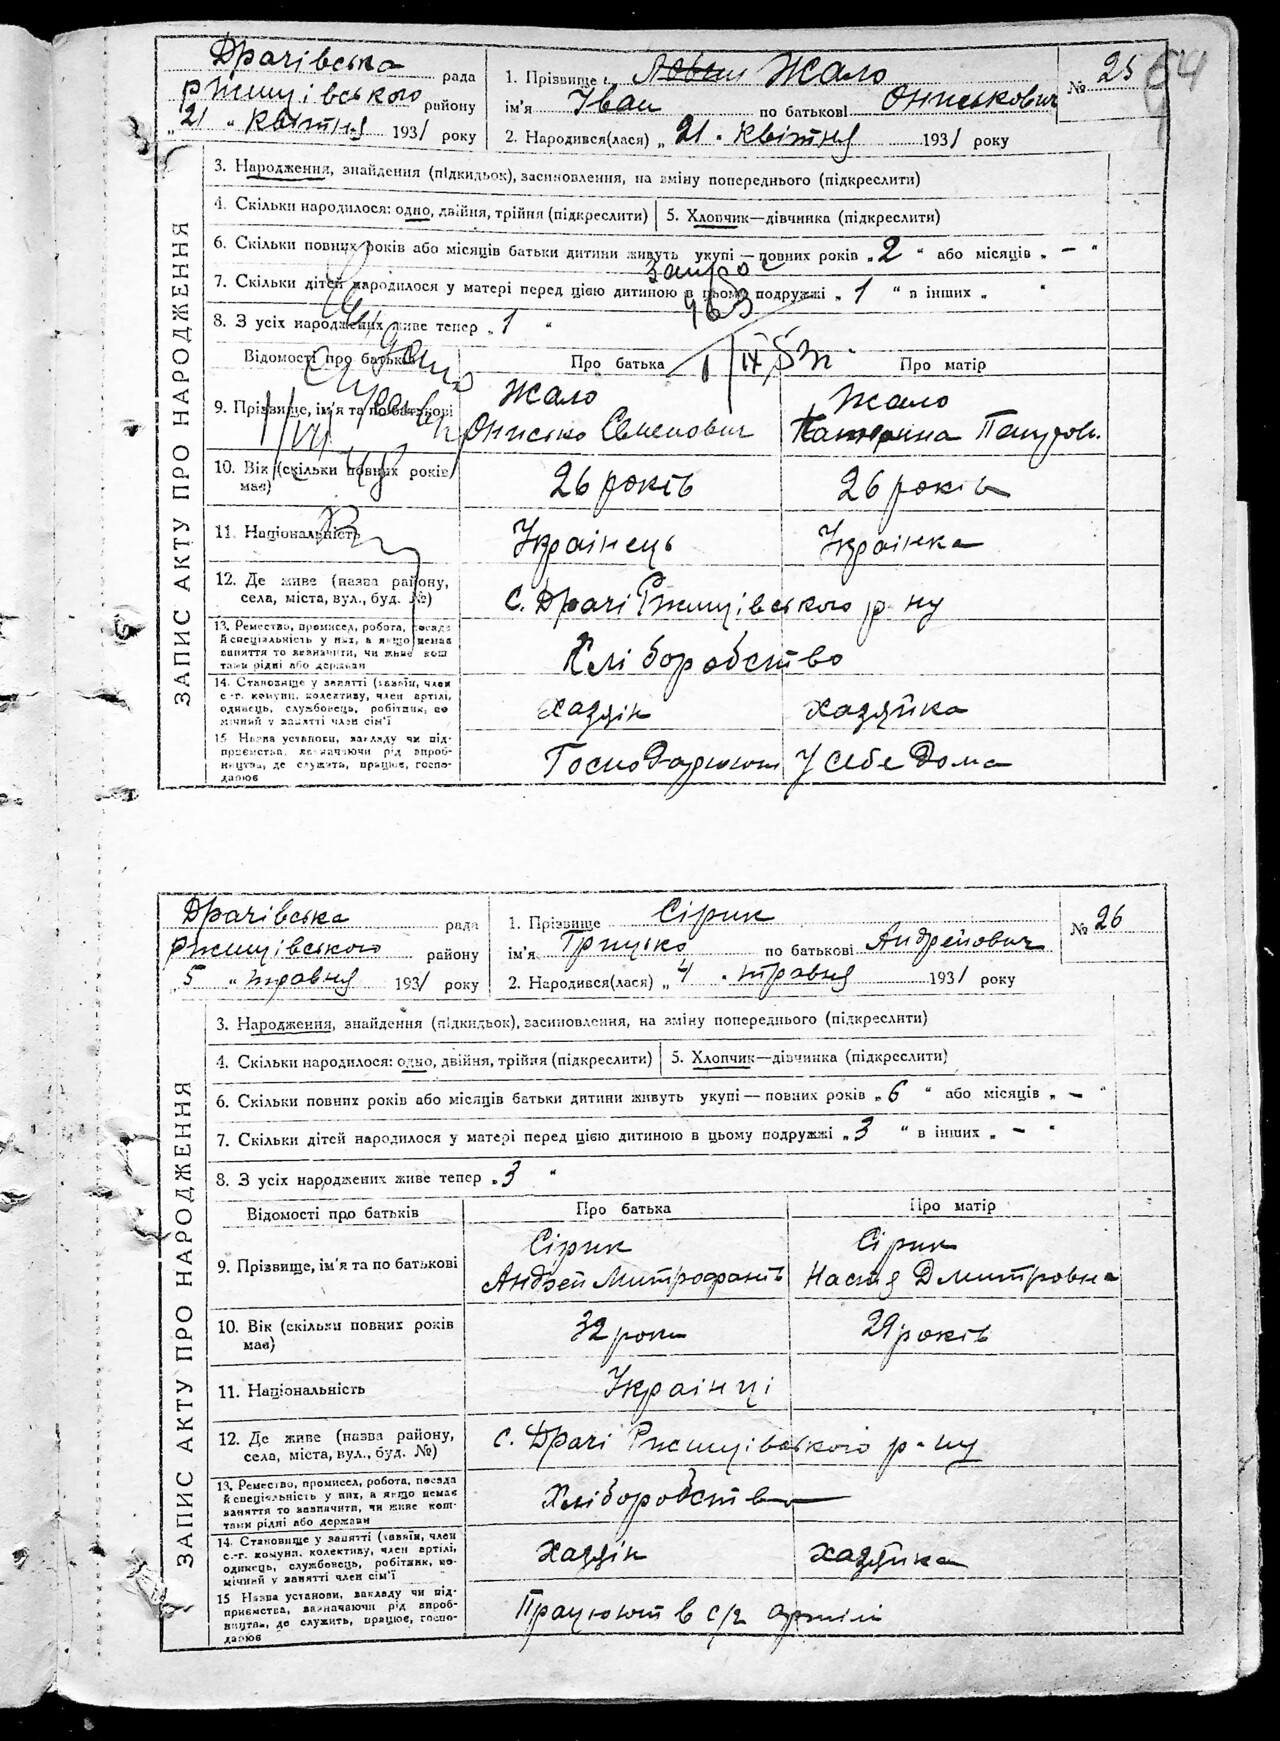 54
Драчівська рада
Ржищівського району
„21 “ Квітня 1931 року
1. Прізвище Жало
ім'я Іван по батькові Ониськович
2. Народився(лася) „ 21 “ Квітня 1931 року
№ 25
ЗАПИС АКТУ ПРО НАРОДЖЕННЯ
3. Народження, знайдення (підкидьок), засиновлення, на зміну попереднього (підкреслити)
4. Скільки народилося: одно, двійня, трійня (підкреслити)
5. Хлопчик—дівчинка (підкреслити)
6. Скільки повних років або місяців батьки дитини живуть укупі — повних років „ 2 “ або місяців „ — “
7. Скільки дітей народилося у матері перед цією дитиною в цьому подружжі „ 1 “ в інших „ “
8. З усіх народжених живе тепер „ 1 “
Відомості про батьків Про батька Про матір
9. Прізвище, ім'я та по батькові
Жало
Онисько Семенович
Жало
Катерина
10. Вік (скільки повних років має) 26 років 26 років
11. Національність Українець Українка
12. Де живе (назва району, села, міста, вул., буд. №)
с. Драчі Ржищівського р-ну
13. Ремество, промисел, робота, посада й спеціяльність у них, а якщо немає заняття то зазначити, чи живе коштами рідні або держави
Хліборобство
14. Становище у занятті (хазяїн, член с.-г. комуни, колективу, член артілі, одинець, службовець, робітник, помічний у занятті член сім'ї
хазяїн хазяйка
15 Назва установи, закладу чи підприємства, зазначаючи рід виробництва, де служить, працює, господарює
Господарюют У себе дома
Драчівська рада
Ржищівського району
„5 “ травня 1931 року
1. Прізвище Сірик
ім'я Грицько по батькові Андрейович
2. Народився(лася) „ 4 “ травня 1931 року
№ 26
ЗАПИС АКТУ ПРО НАРОДЖЕННЯ
3. Народження, знайдення (підкидьок), засиновлення, на зміну попереднього (підкреслити)
4. Скільки народилося: одно, двійня, трійня (підкреслити)
5. Хлопчик—дівчинка (підкреслити)
6. Скільки повних років або місяців батьки дитини живуть укупі — повних років „ 6 “ або місяців „ — “
7. Скільки дітей народилося у матері перед цією дитиною в цьому подружжі „ 3 “ в інших „ — “
8. З усіх народжених живе тепер „ 3 “
Відомості про батьків Про батька Про матір
9. Прізвище, ім'я та по батькові
Сірик
Андрей Митрофанів
Сірик
Настя Дмитровна
10. Вік (скільки повних років має) 32 роки 29 років
11. Національність Українці
12. Де живе (назва району, села, міста, вул., буд. №)
с. Драчі Ржищівського р-ну
13. Ремество, промисел, робота, посада й спеціяльність у них, а якщо немає заняття то зазначити, чи живе коштами рідні або держави
Хліборобство
14. Становище у занятті (хазяїн, член с.-г. комуни, колективу, член артілі, одинець, службовець, робітник, помічний у занятті член сім'ї
хазяїн хазяйка
15 Назва установи, закладу чи підприємства, зазначаючи рід виробництва, де служить, працює, господарює
Працюют в с/г артілі